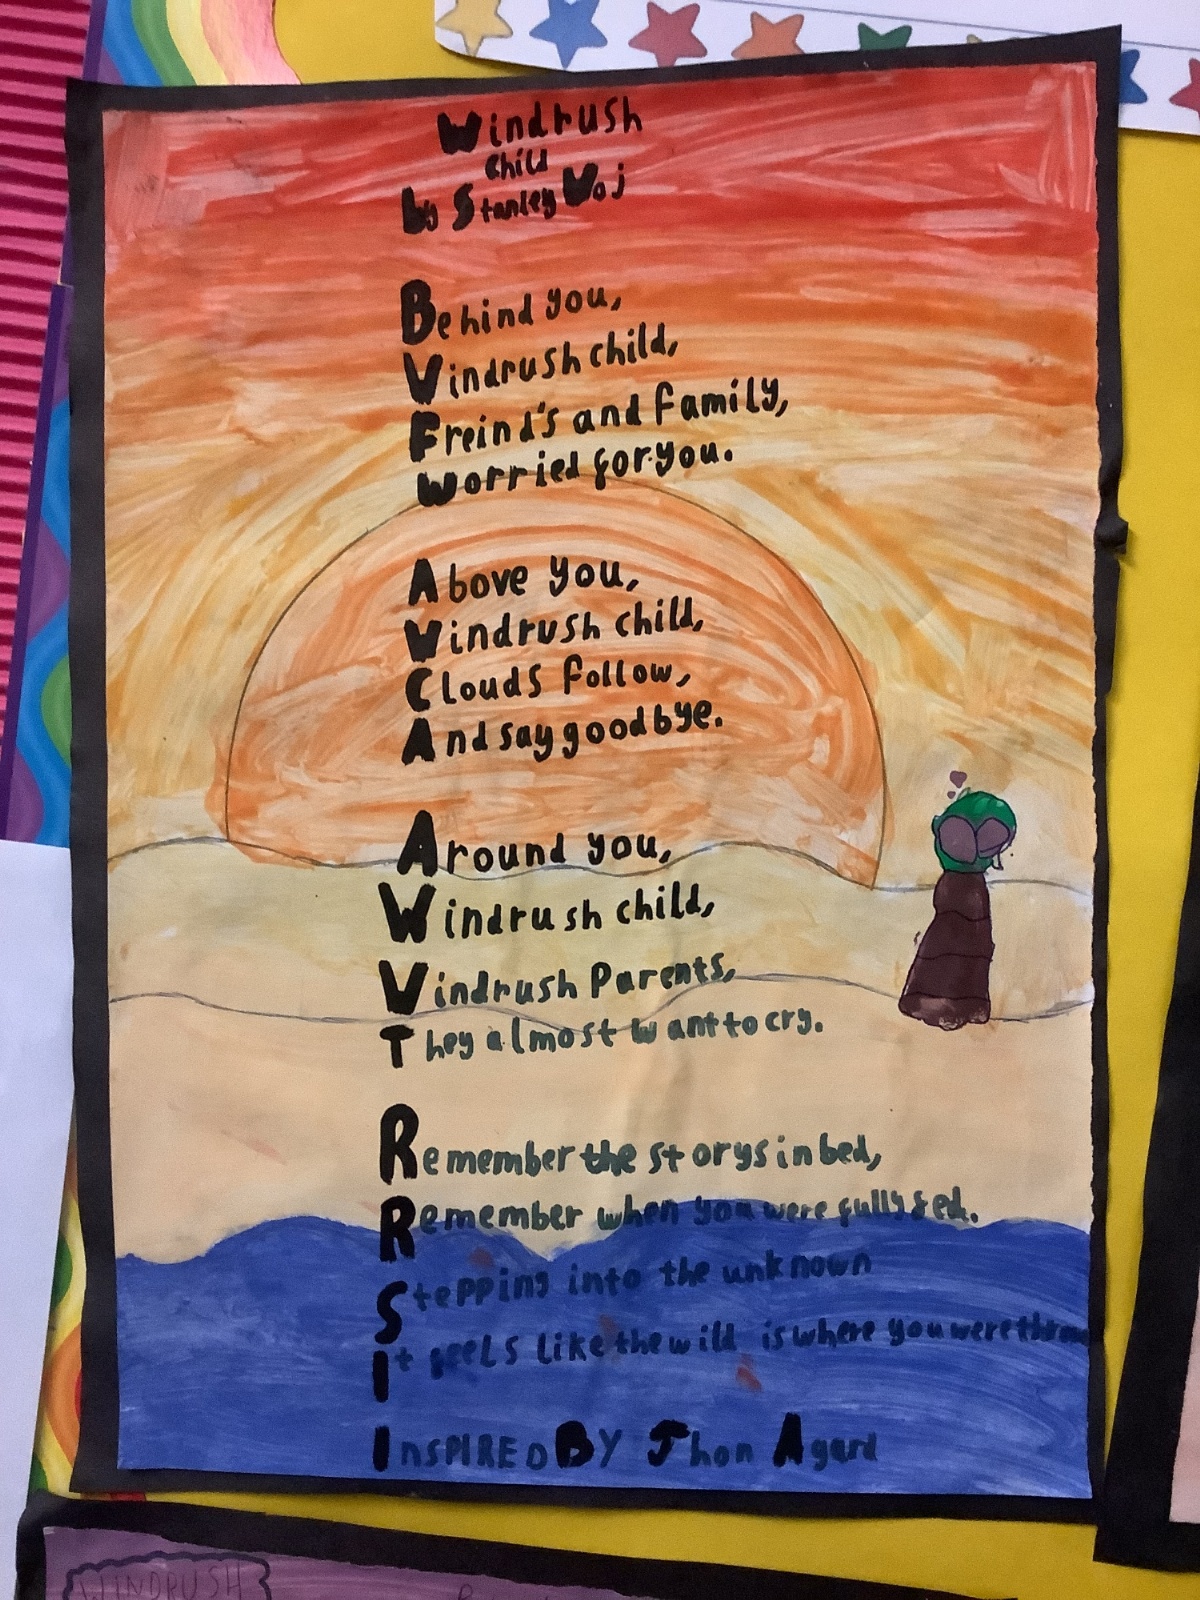 Windrush
Child
by Stanley Voj
Behind you,
Vindrush child,
Freind's and family,
worried for you.
Above you,
Vindrush child,
Clouds follow,
And say goodbye.
Around you,
Windrush child,
Vindrush Parents,
They almost want to cry.
Remember the storys in bed,
Remember when you were fully fed.
Stepping into the unknown
It feels like the wild is where you were thrown
INSPIRED BY Jhon Agard
WINDRUSH